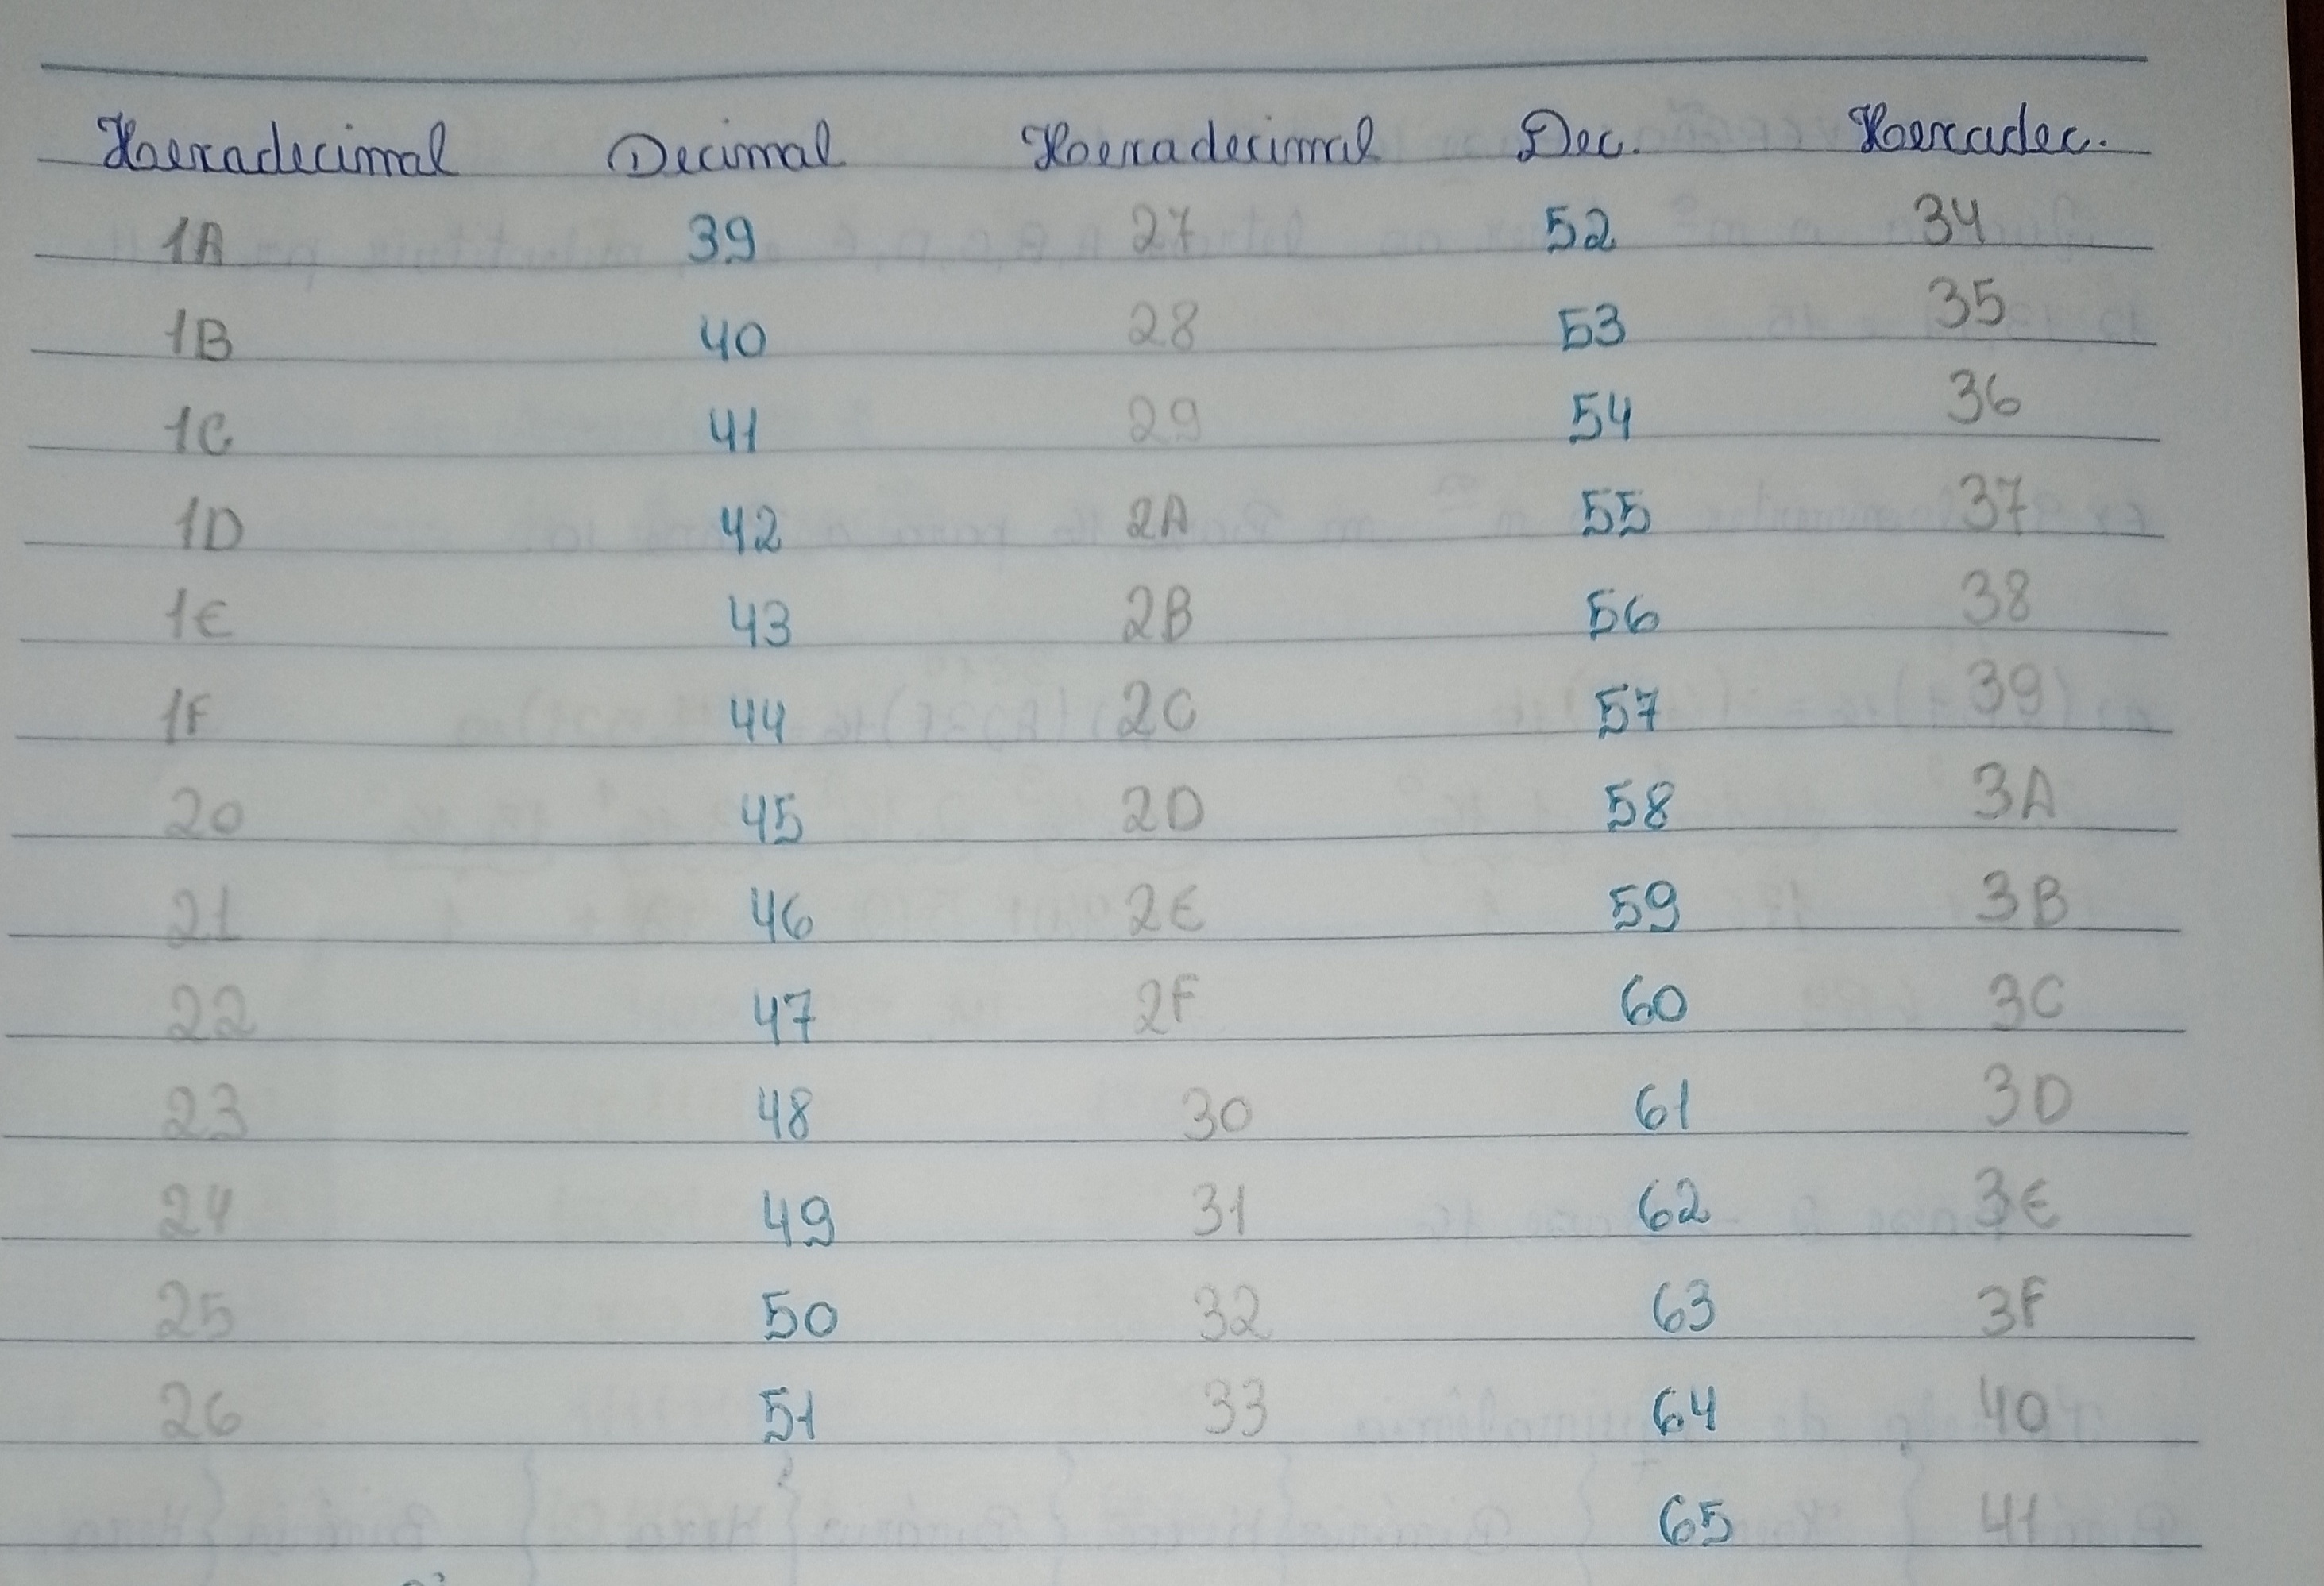 Hexadecimal Decimal Hexadecimal Dec. Hexadec.
1A 39 27 52 34
1B 40 28 53 35
1C 41 29 54 36
1D 42 2A 55 37
1E 43 2B 56 38
1F 44 2C 57 39
20 45 2D 58 3A
21 46 2E 59 3B
22 47 2F 60 3C
23 48 30 61 3D
24 49 31 62 3E
25 50 32 63 3F
26 51 33 64 40
65 41